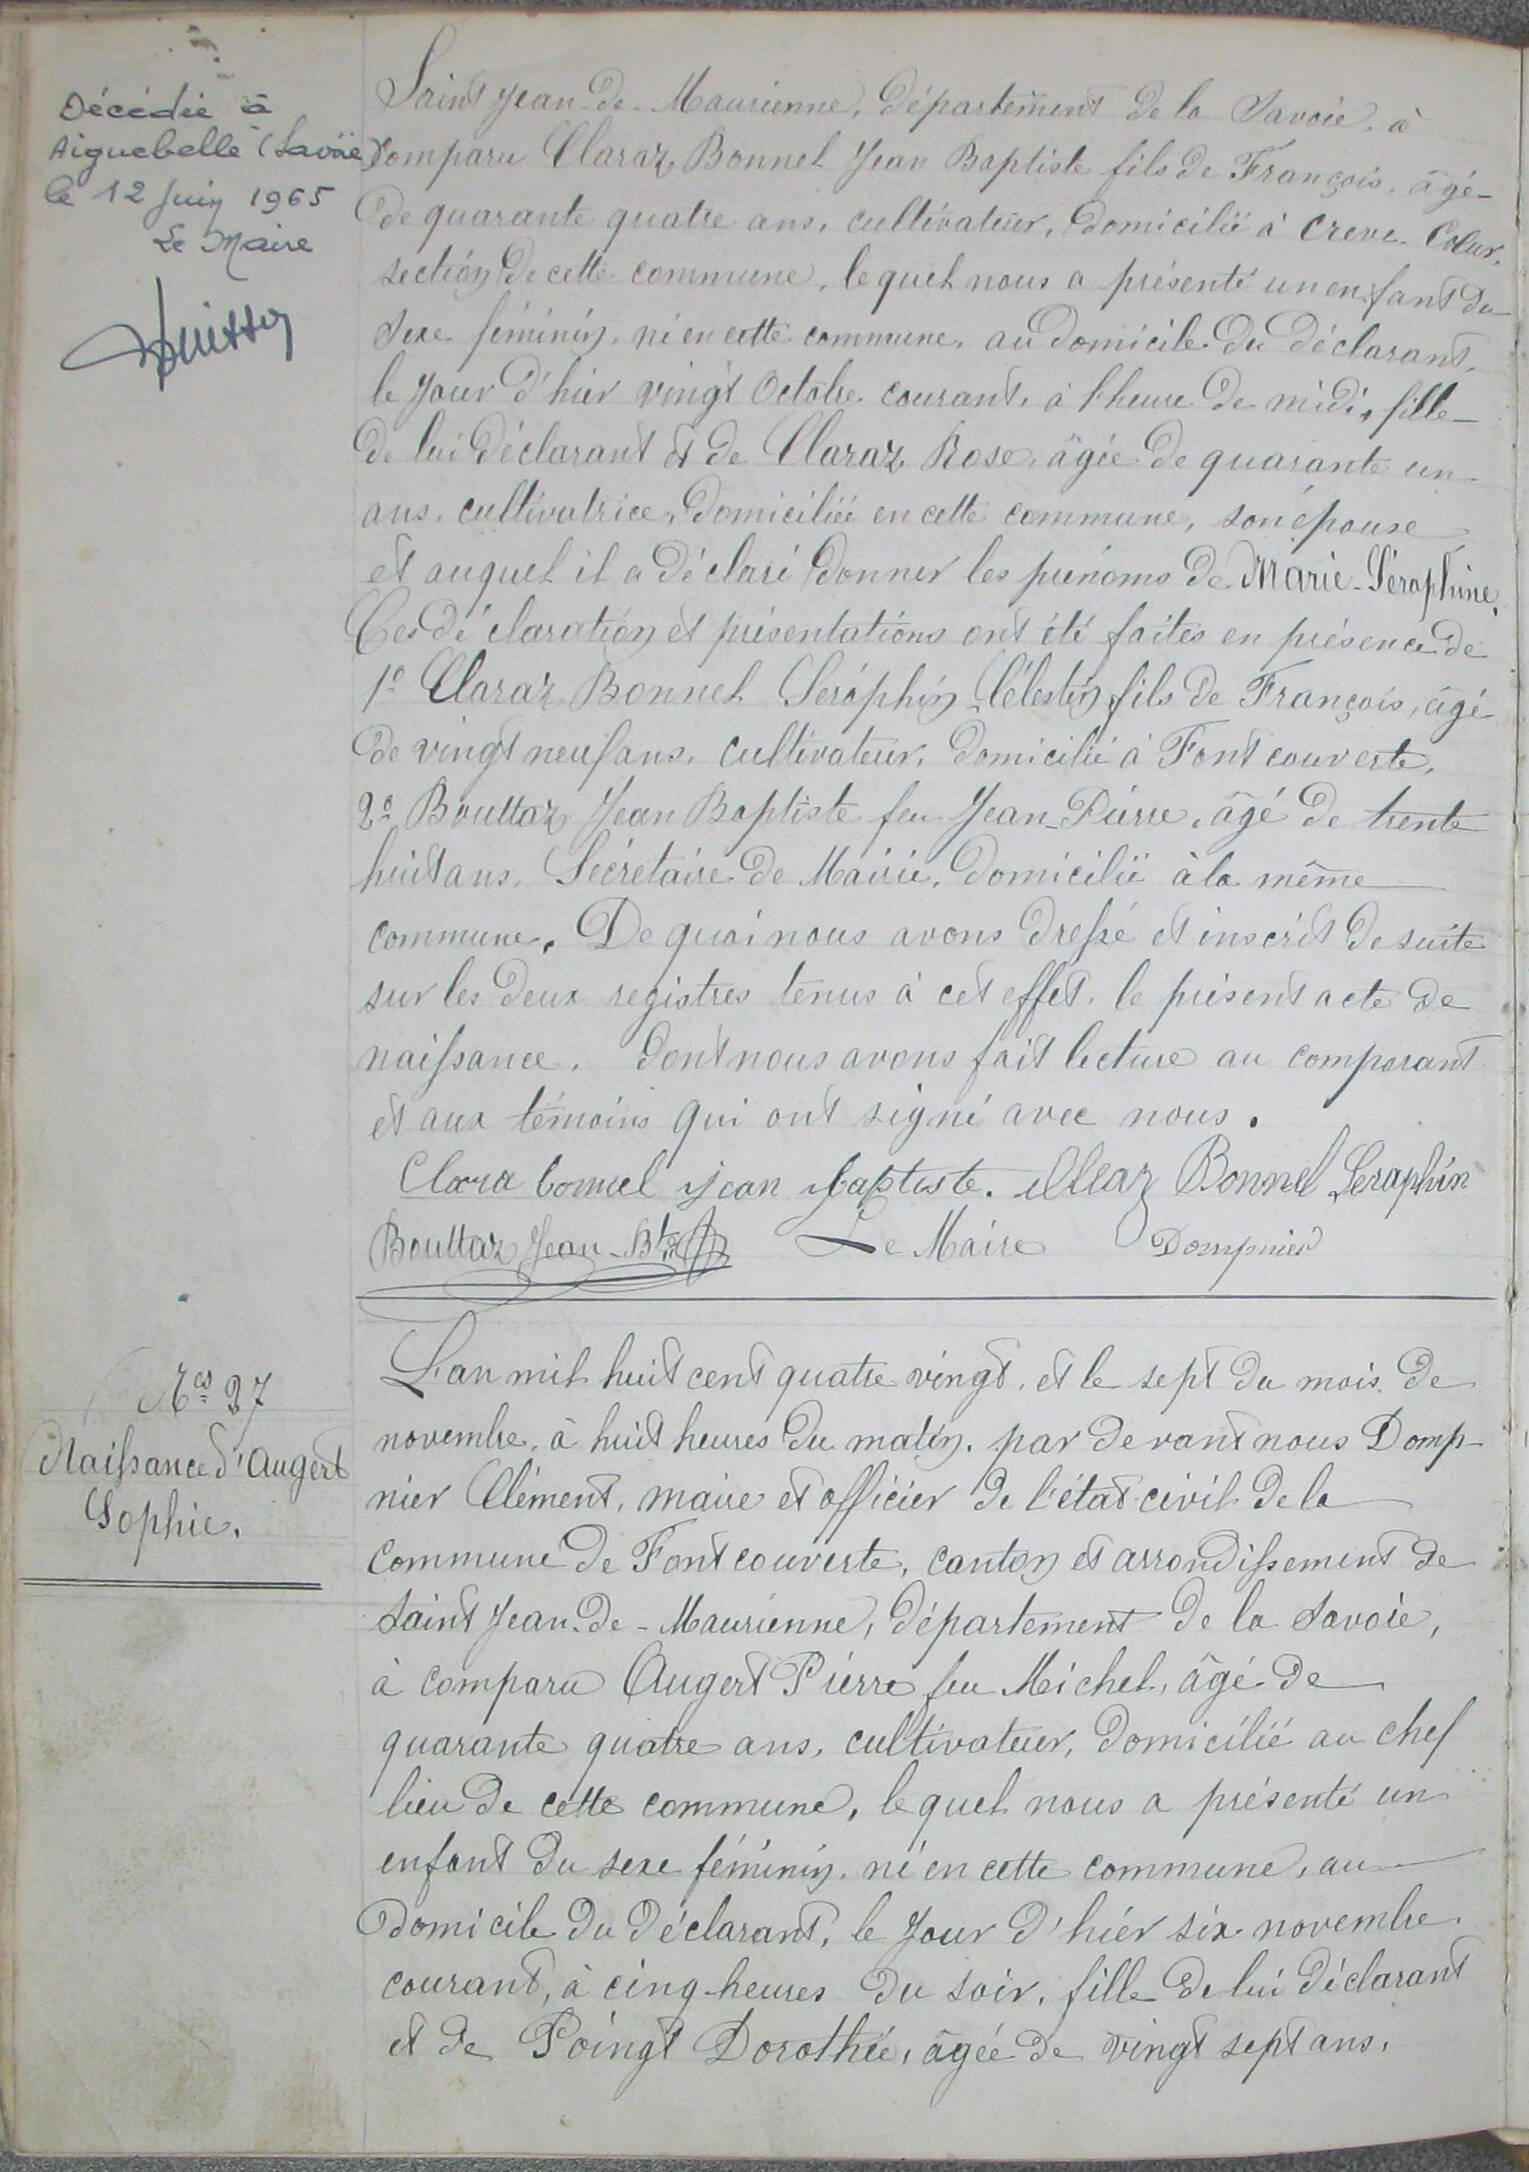 Décédée à
Aiguebelle (Savoie)
le 12 Juin 1965
Le Maire
Saint Jean-de-Maurienne, département de la Savoie, à
comparu Claraz Bonnel Jean Baptiste fils de François, âgé
de quarante quatre ans, cultivateur, domicilié à Creve-Cœur,
section de cette commune, lequel nous a présenté un enfant du
sexe féminin, né en cette commune, au domicile du déclarant,
le jour d'hier vingt Octobre courant, à l'heure de midi, fille
de lui déclarant et de Claraz Rose, âgée de quarante un
ans, cultivatrice, domiciliée en cette commune, son épouse
et auquel il a déclaré donner les prénoms de Marie-Séraphine.
Ces déclaration et présentations ont été faites en présence de
1º Claraz Bonnel Seraphin Célestin fils de François, âgé
de vingt neuf ans, cultivateur, domicilié à Fontcouverte,
2º Bouttaz Jean Baptiste feu Jean-Pierre, âgé de trente
huit ans, Secrétaire de Mairie, domicilié à la même
commune. De quoi nous avons dressé et inscrit de suite
sur les deux registres tenus à cet effet, le présent acte de
naissance. dont nous avons fait lecture au comparant
et aux témoins qui ont signé avec nous.
Clara bonnel jean baptiste. Claraz Bonnel Seraphin
Bouttaz Jean-Bte Le Maire Dompnier
Nº 27
Naissance d'Augert
Sophie.
L'an mil huit cent quatre vingt, et le sept du mois de
novembre, à huit heures du matin, par devant nous Domp-
nier Clément, maire et officier de l'état-civil de la
commune de Fontcouverte, canton et arrondissement de
Saint Jean-de-Maurienne, département de la Savoie,
à comparu Augert Pierre feu Michel, âgé de
quarante quatre ans, cultivateur, domicilié au chef
lieu de cette commune, lequel nous a présenté un
enfant du sexe féminin, né en cette commune, au
domicile du déclarant, le jour d'hier six novembre
courant, à cinq heures du soir, fille de lui déclarant
et de Poingt Dorothée, âgée de vingt sept ans,